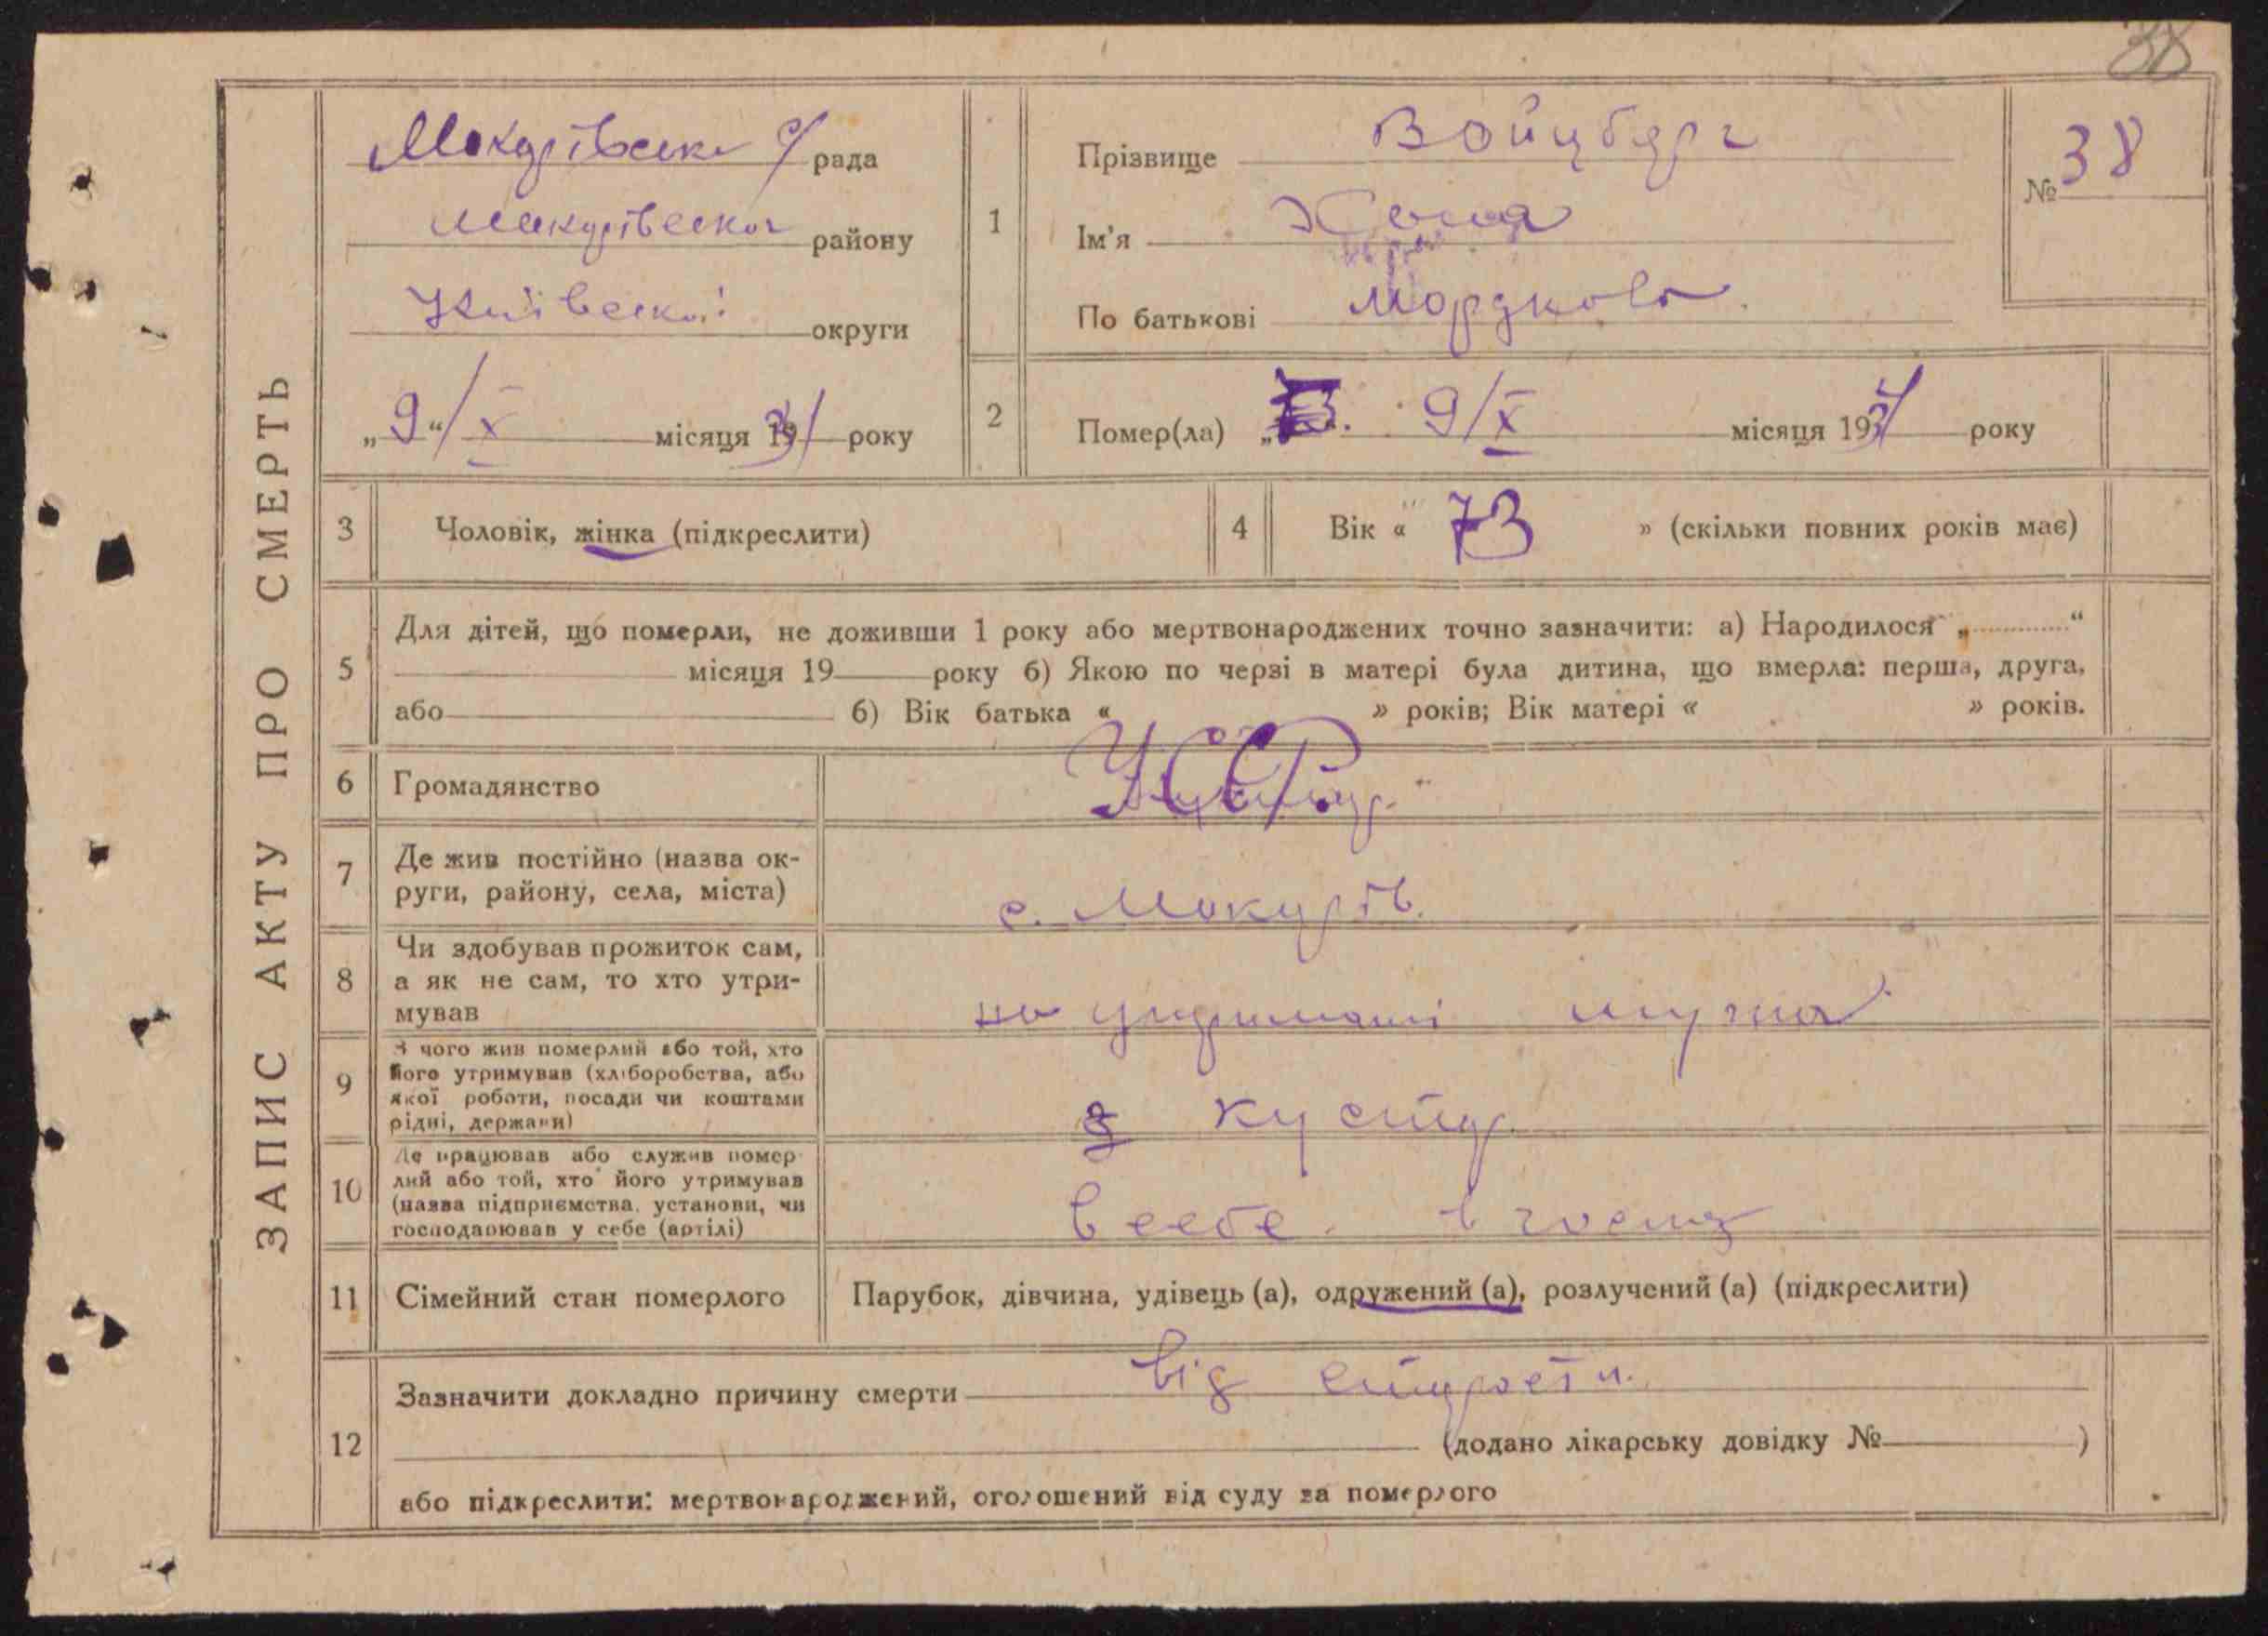 38
ЗАПИС АКТУ ПРО СМЕРТЬ
с/рада
району
округи
„9“/X місяця 1931 року
1
Прізвище Войцберг
Ім'я
По батькові Мордкова
№ 38
2
Помер(ла) „ 9/X місяця 1931 року
3
Чоловік, жінка (підкреслити)
4
Вік « 73 » (скільки повних років має)
5
Для дітей, що померли, не доживши 1 року або мертвонароджених точно зазначити: а) Народилося „ “
місяця 19 року б) Якою по черзі в матері була дитина, що вмерла: перша, друга,
або б) Вік батька « » років; Вік матері « » років.
6
Громадянство УССР.
7
Де жив постійно (назва ок-
руги, району, села, міста)
с. Макарів.
8
Чи здобував прожиток сам,
а як не сам, то хто утри-
мував
на утриманні мужа
9
З чого жив померлий або той, хто
його утримував (хліборобства, або
якої роботи, посади чи коштами
рідні, держави)
з кустар.
10
Де працював або служив помер-
лий або той, хто його утримував
(назва підприємства, установи, чи
господарював у себе (артілі)
в себе в
11
Сімейний стан померлого
Парубок, дівчина, удівець (а), одружений (а), розлучений (а) (підкреслити)
12
Зазначити докладно причину смерти від старости.
(додано лікарську довідку № )
або підкреслити: мертвонароджений, оголошений від суду за померлого